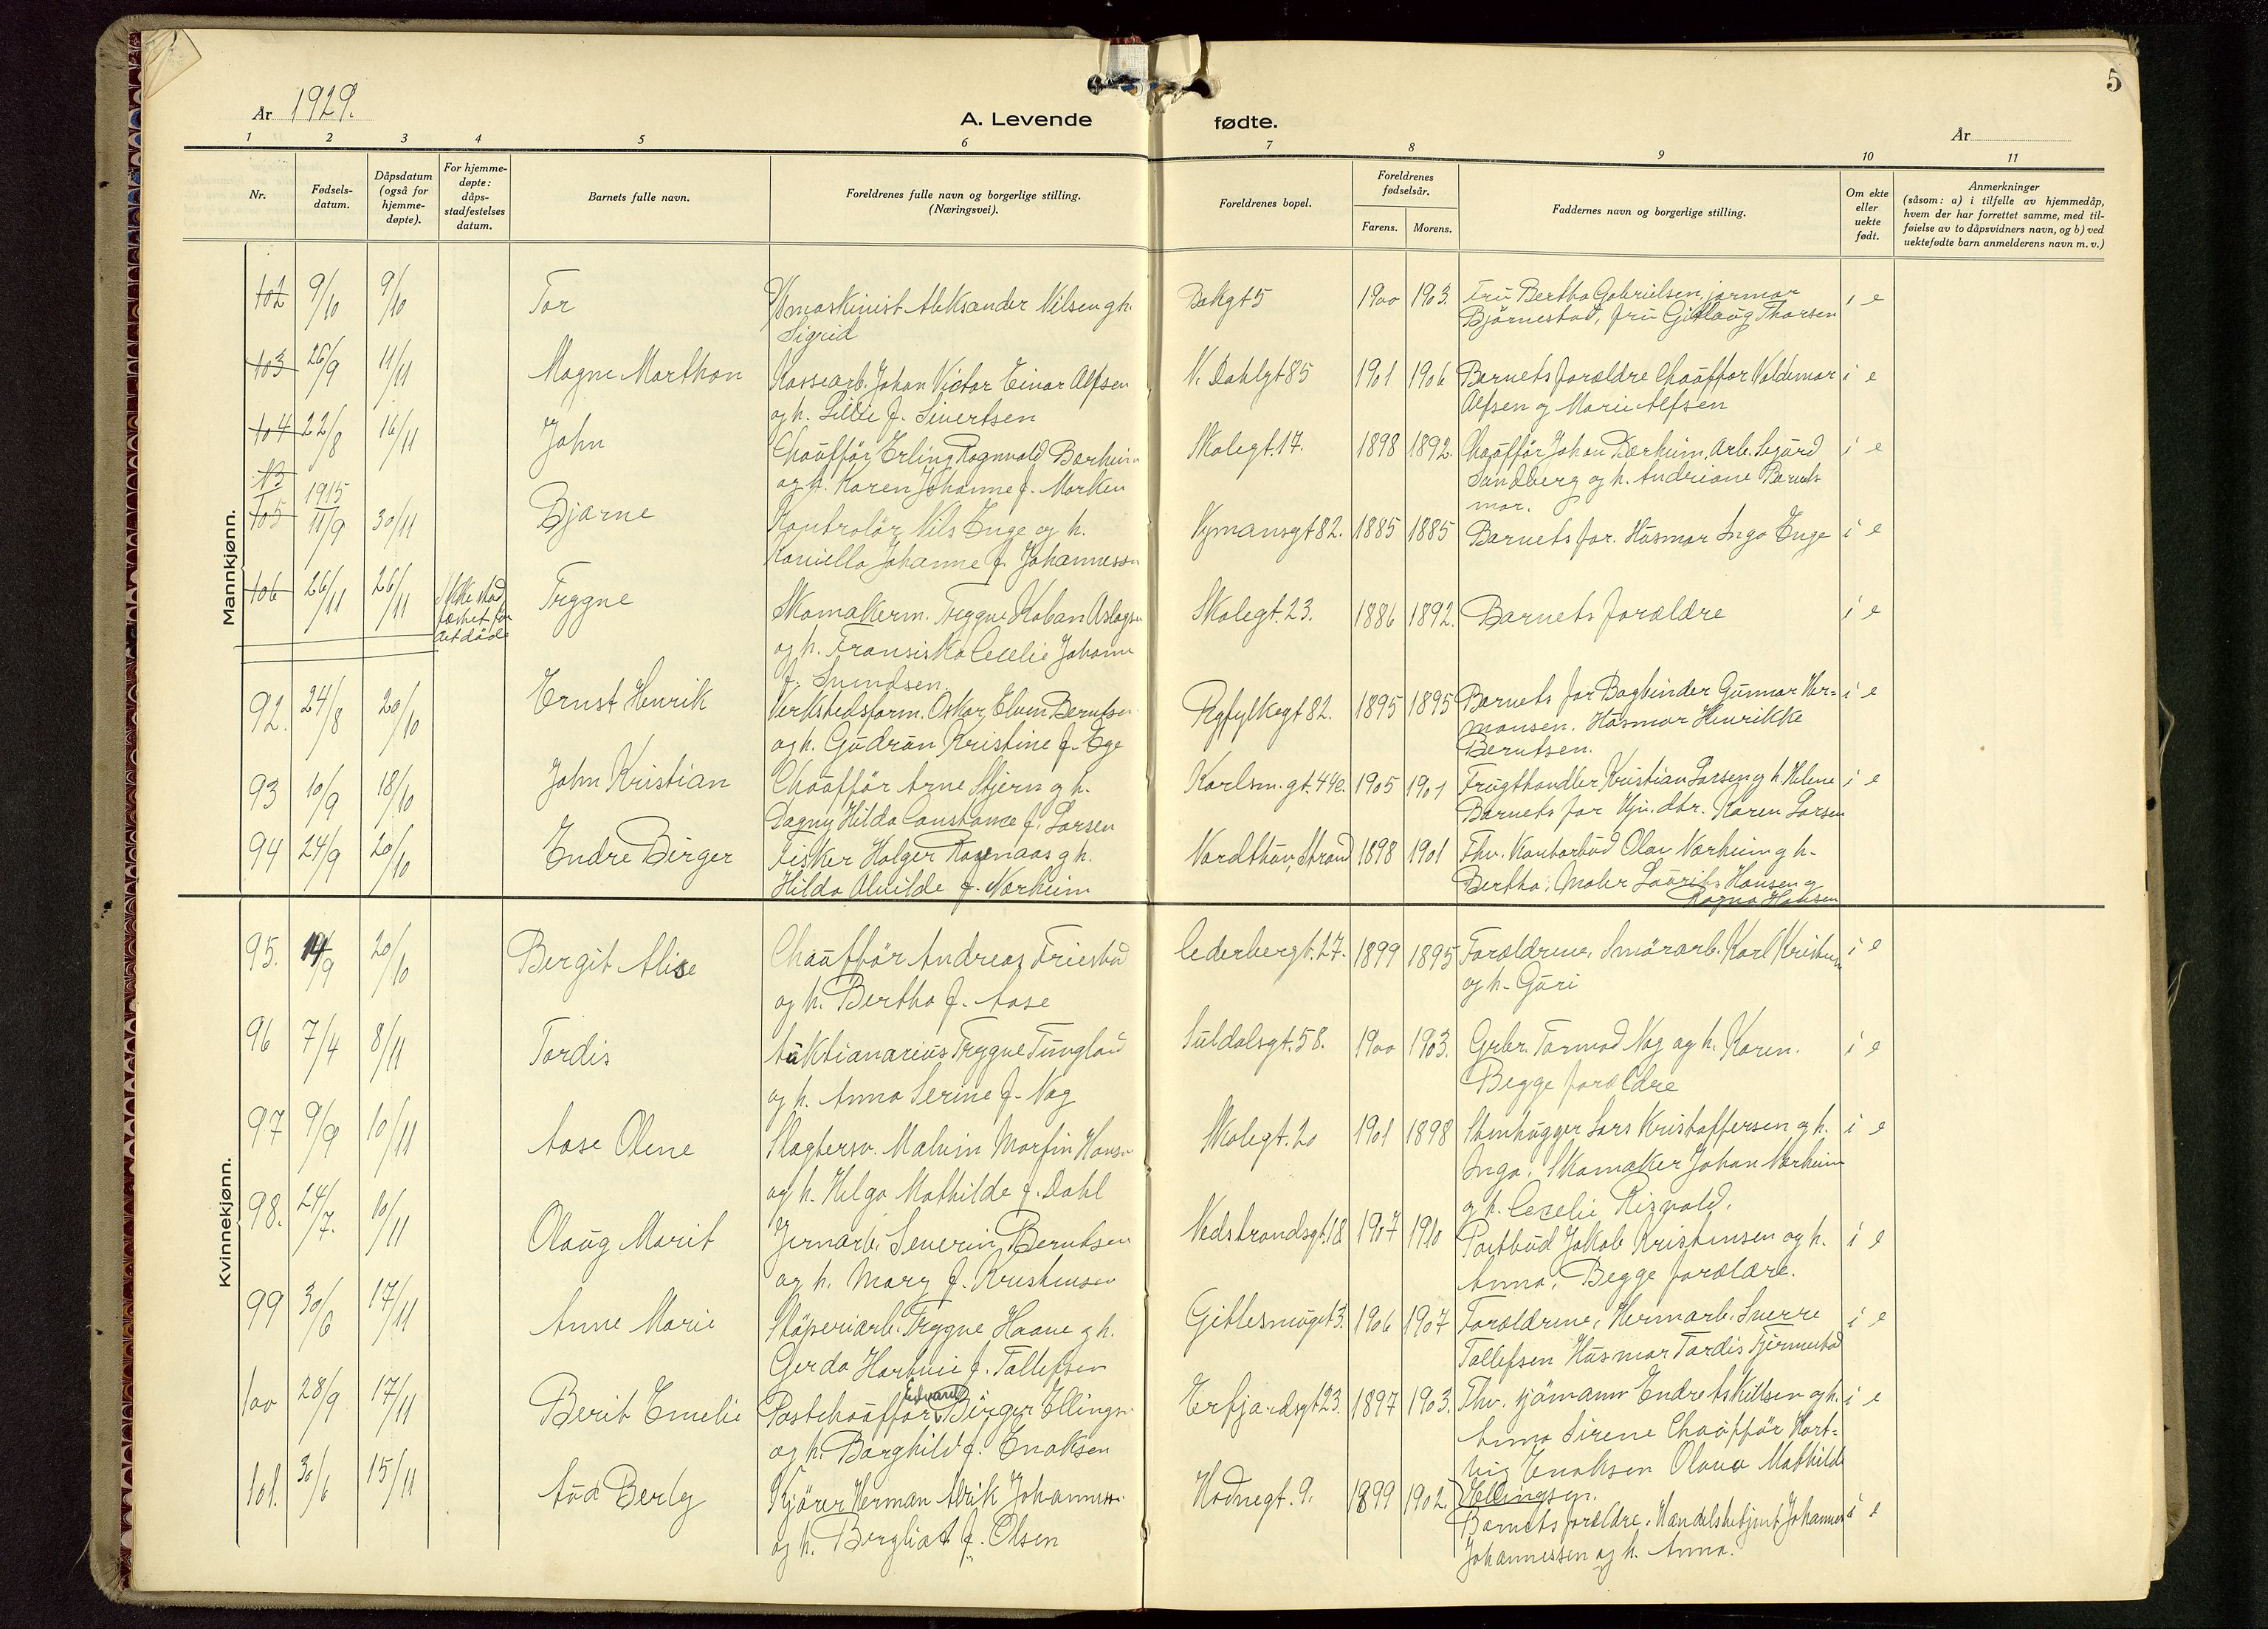 5
År 1929.
A. Levende fødte.
År
1 2 3 4 5 6 7 8 9 10 11
Nr.
Fødsels-
datum.
Dåpsdatum
(også for
hjemme-
døpte).
For hjemme-
døpte:
dåps-
stadfestelses
datum.
Barnets fulle navn.
Foreldrenes fulle navn og borgerlige stilling.
(Næringsvei).
Foreldrenes bopel.
Foreldrenes
fødselsår.
Farens. Morens.
Faddernes navn og borgerlige stilling.
Om ekte
eller
uekte
født.
Anmerkninger
(såsom: a) i tilfelle av hjemmedåp,
hvem der har forrettet samme, med til-
føielse av to dåpsvidners navn, og b) ved
uektefødte barn anmelderens navn m. v.)
Mannkjønn.
102 9/10 9/10 Tor maskinist Aleksander Nilsen og h. Bakgt 5 1900 1903. Fru Bertha Gabrielsen, jormor i e
Sigrid Bjørnestad, fru Gitlaug Thorsen
103 26/9 11/11 Magne Marthon Kassearb. Johan Victor Einar Alfsen V. Dahlgt 85 1901 1906 Barnets forældre Chauffør Valdemar i e
og h. Lillie f. Sivertsen Alfsen og Marie Alfsen
104 22/8 16/11 John Chauffør Erling Ragnvald Bærheim Skolegt. 17. 1898 1892. Chauffør Johan Bærheim, Arb. Sigurd i e
og h. Karen Johanne f. Marken Sandberg og h. Andriane Barnets
mor.
N3
105 1915 11/9 30/11 Bjarne Kontrolør Nils Enge og h. Nymansgt 82. 1885 1885 Barnets far. Husmor Inga Enge i e
Johanne f. Johannessen
106 26/11 26/11 Ikke stad
fæstet før
det døde Trygve Skomakerm. Trygve Aslagsen Skolegt. 23. 1886 1892. Barnets forældre i e
og h. Fransiska Cecelie Johanne
f. Svendsen
92. 24/8 20/10 Ernst Henrik Verkstedsform. Oskar Elven Berntsen Ryfylkegt 82. 1895 1895 Barnets far Bogbinder Gunnar Her- i e
og h. Gudrun Kristine f. Ege mansen. Husmor Henrikke
Berntsen.
93 10/9 18/10 John Kristian Chauffør Arne Stjern og h. Karlsm.gt. 44c. 1905 1901 Frugthandler Kristian Larsen og h. Helene i e
Dagny Hilda Constance f. Larsen Barnets far Karen Larsen
94 24/9 20/10 Endre Birger Fisker Holger og h. Nordthun, Strand 1898 1901 Thv. Kontorbud Olav Nærheim og h.
Hilda Alvilde f. Nærheim Bertha, Maler Laurits Hansen og
Ragna Hansen
Kvinnekjønn.
95. 14/9 20/10 Bergit Alise Chauffør Andreas Friestad Cederbergt. 27. 1899 1895 Forældrene, Smørarb. Karl Kristensen i e
og h. Bertha f. Aase og h. Guri
96 7/4 8/11 Tordis Auktianarius Trygve Tungland Suldalsgt. 58. 1900 1903. Grbr. Tormod Nag og h. Karen. i e
og h. Anna Serine f. Nag Begge forældre
97 9/9 10/11 Aase Olene Slagtersv. Malvin Marfin Hansen Skolegt. 20 1901 1898 Stenhugger Lars Kristoffersen og h. i e
og h. Helga Mathilde f. Dahl Inga, Skomaker Johan Nærheim
og h. Cecelie
98. 24/7. 10/11 Olaug Marit Jernarb. Severin Berntsen Nedstrandsgt. 18 1907 1910 Postbud Jakob Kristensen og h. i e
og h. Mary f. Kristensen Anna, Begge forældre.
99 30/6 17/11 Anne Marie Støperiarb. Trygve Haane og h. Gitlesmogt 3. 1906 1907 Forældrene, Hermarb. Sverre i e
Gerda f. Tallefsen Tallefsen Husmor Tordis Tjermestad
100 28/9 17/11 Berit Emelie Postchauffør Edvard Birger Ellingsen Erfjordsgt 23. 1897 1903. Thv. sjømann Endre Eskildsen og h. i e
og h. Borghild f. Enoksen Anna Sirene Chauffør Hart-
vig Enoksen Olava Mathilde
Ellingsen.
101. 30/6 15/11 Aud Berly Kjører Herman Alrik Johannessen Hodnegt. 9. 1899 1902. Barnets forældre, Handelsbetjent Johannes i e
og h. Bergliot f. Olsen Johannessen og h. Anna.